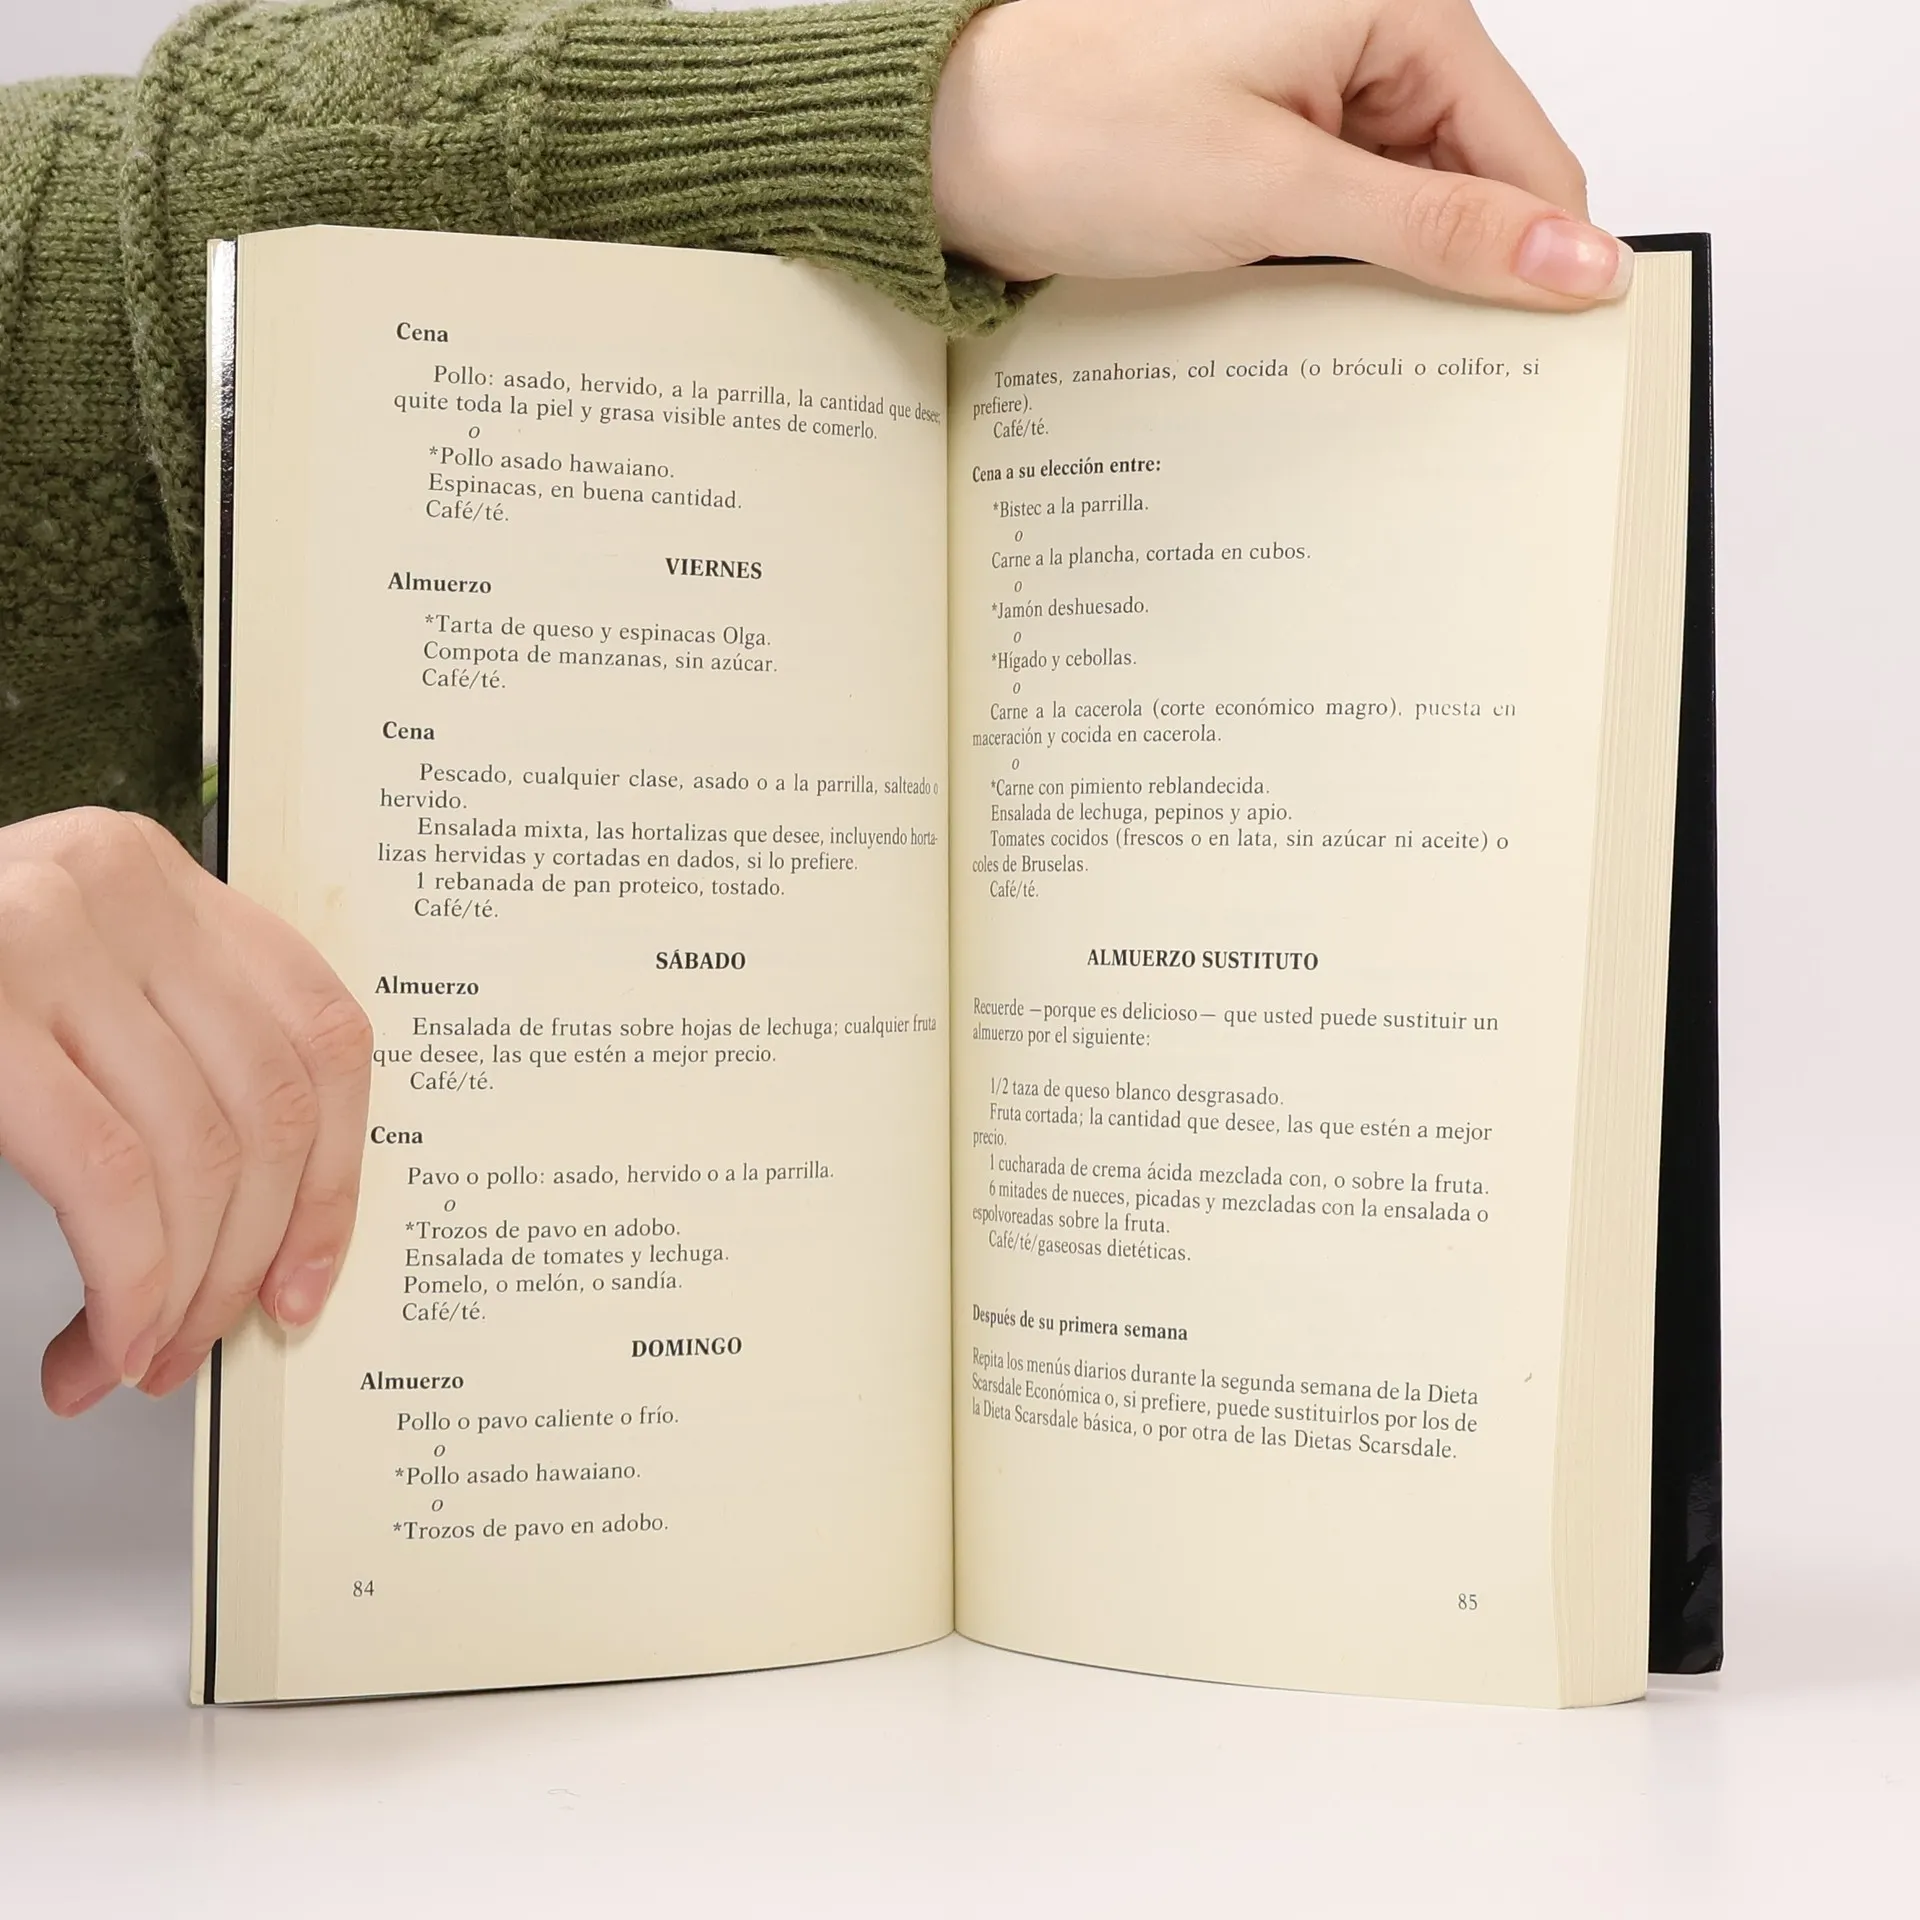 Cena
Pollo: asado, hervido, a la parrilla, la cantidad que desee;
quite toda la piel y grasa visible antes de comerlo.
o
*Pollo asado hawaiano.
Espinacas, en buena cantidad.
Café/té.
VIERNES
Almuerzo
*Tarta de queso y espinacas Olga.
Compota de manzanas, sin azúcar.
Café/té.
Cena
Pescado, cualquier clase, asado o a la parrilla, salteado o
hervido.
Ensalada mixta, las hortalizas que desee, incluyendo horta-
lizas hervidas y cortadas en dados, si lo prefiere.
1 rebanada de pan proteico, tostado.
Café/té.
SÁBADO
Almuerzo
Ensalada de frutas sobre hojas de lechuga; cualquier fruta
que desee, las que estén a mejor precio.
Café/té.
Cena
Pavo o pollo: asado, hervido o a la parrilla.
o
*Trozos de pavo en adobo.
Ensalada de tomates y lechuga.
Pomelo, o melón, o sandía.
Café/té.
DOMINGO
Almuerzo
Pollo o pavo caliente o frío.
o
*Pollo asado hawaiano.
o
*Trozos de pavo en adobo.
84
Tomates, zanahorias, col cocida (o bróculi o colifor, si
prefiere).
Café/té.
Cena a su elección entre:
*Bistec a la parrilla.
o
Carne a la plancha, cortada en cubos.
o
*Jamón deshuesado.
o
*Hígado y cebollas.
o
Carne a la cacerola (corte económico magro), puesta en
maceración y cocida en cacerola.
o
*Carne con pimiento reblandecida.
Ensalada de lechuga, pepinos y apio.
Tomates cocidos (frescos o en lata, sin azúcar ni aceite) o
coles de Bruselas.
Café/té.
ALMUERZO SUSTITUTO
Recuerde —porque es delicioso— que usted puede sustituir un
almuerzo por el siguiente:
1/2 taza de queso blanco desgrasado.
Fruta cortada; la cantidad que desee, las que estén a mejor
precio.
1 cucharada de crema ácida mezclada con, o sobre la fruta.
6 mitades de nueces, picadas y mezcladas con la ensalada o
espolvoreadas sobre la fruta.
Café/té/gaseosas dietéticas.
Después de su primera semana
Repita los menús diarios durante la segunda semana de la Dieta
Scarsdale Económica o, si prefiere, puede sustituirlos por los de
la Dieta Scarsdale básica, o por otra de las Dietas Scarsdale.
85